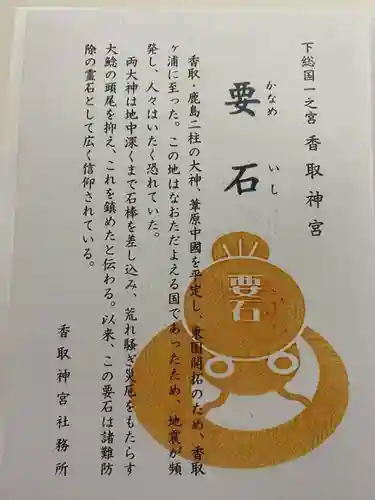 下総国一之宮 香取神宮
要石
かなめ いし
香取・鹿島二柱の大神、葦原中國を平定し、東国開拓のため、香取
ヶ浦に至った。この地はなおただよえる国であったため、地震が頻
発し、人々はいたく恐れていた。
両大神は地中深くまで石棒を差し込み、荒れ騒ぎ災厄をもたらす
大鯰の頭尾を抑え、これを鎮めたと伝わる。以来、この要石は諸難防
除の霊石として広く信仰されている。
香取神宮社務所
要石